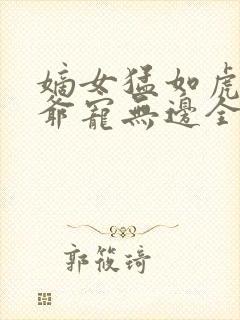 嫡女猛如虎
爺寵無邊全
郭筱琦